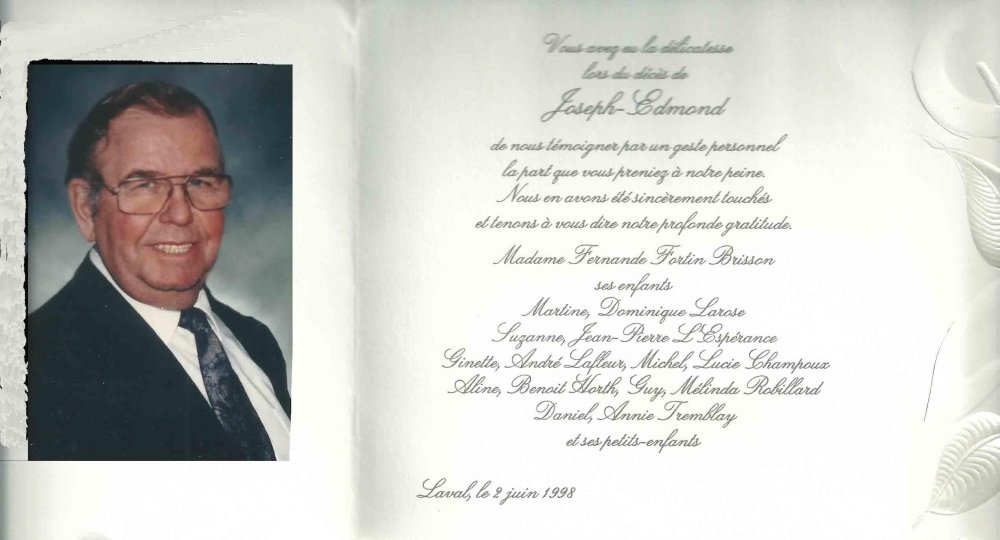 Vous avez eu la délicatesse
lors du décès de
Joseph-Edmond
de nous témoigner par un geste personnel
la part que vous preniez à notre peine.
Nous en avons été sincèrement touchés
et tenons à vous dire notre profonde gratitude.
Madame Fernande Fortin Brisson
ses enfants
Martine, Dominique Larose
Suzanne, Jean-Pierre L'Espérance
Ginette, André Lafleur, Michel, Lucie Champoux
Aline, Benoit Horth, Guy, Mélinda Robillard
Daniel, Annie Tremblay
et ses petits-enfants
Laval, le 2 juin 1998